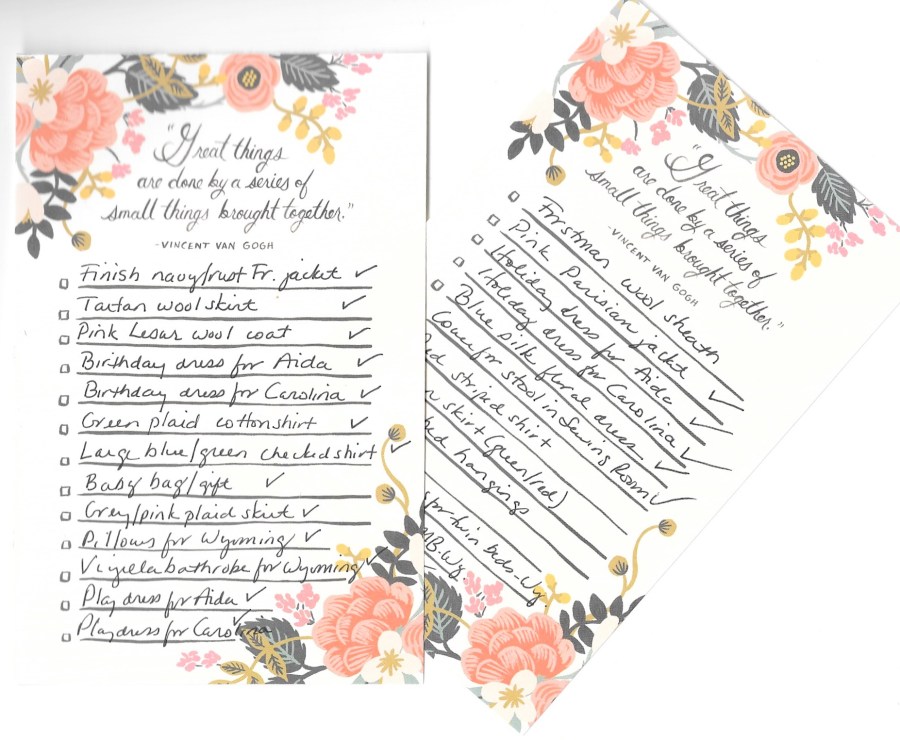 "Great things
are done by a series of
small things brought together."
-VINCENT VAN GOGH
Finish navy/rust Fr. jacket ✓
Tartan wool skirt ✓
Pink Lesur wool coat ✓
Birthday dress for Aida ✓
Birthday dress for Carolina ✓
Green plaid cotton shirt ✓
Large blue/green checked shirt ✓
Baby bag/gift ✓
Grey/pink plaid skirt ✓
Pillows for Wyoming ✓
Viyella bathrobe for Wyoming ✓
Play dress for Aida ✓
Play dress for Carolina ✓
"Great things
are done by a series of
small things brought together."
-VINCENT VAN GOGH
wool sheath
Pink Parisian jacket ✓
Holiday dress for Aida ✓
Holiday dress for Carolina ✓
Blue silk floral dress ✓
Cover for stool in Sewing Room ✓
striped shirt
skirt (green/red)
hangings
for twin beds-Wy.
MB.Wy.